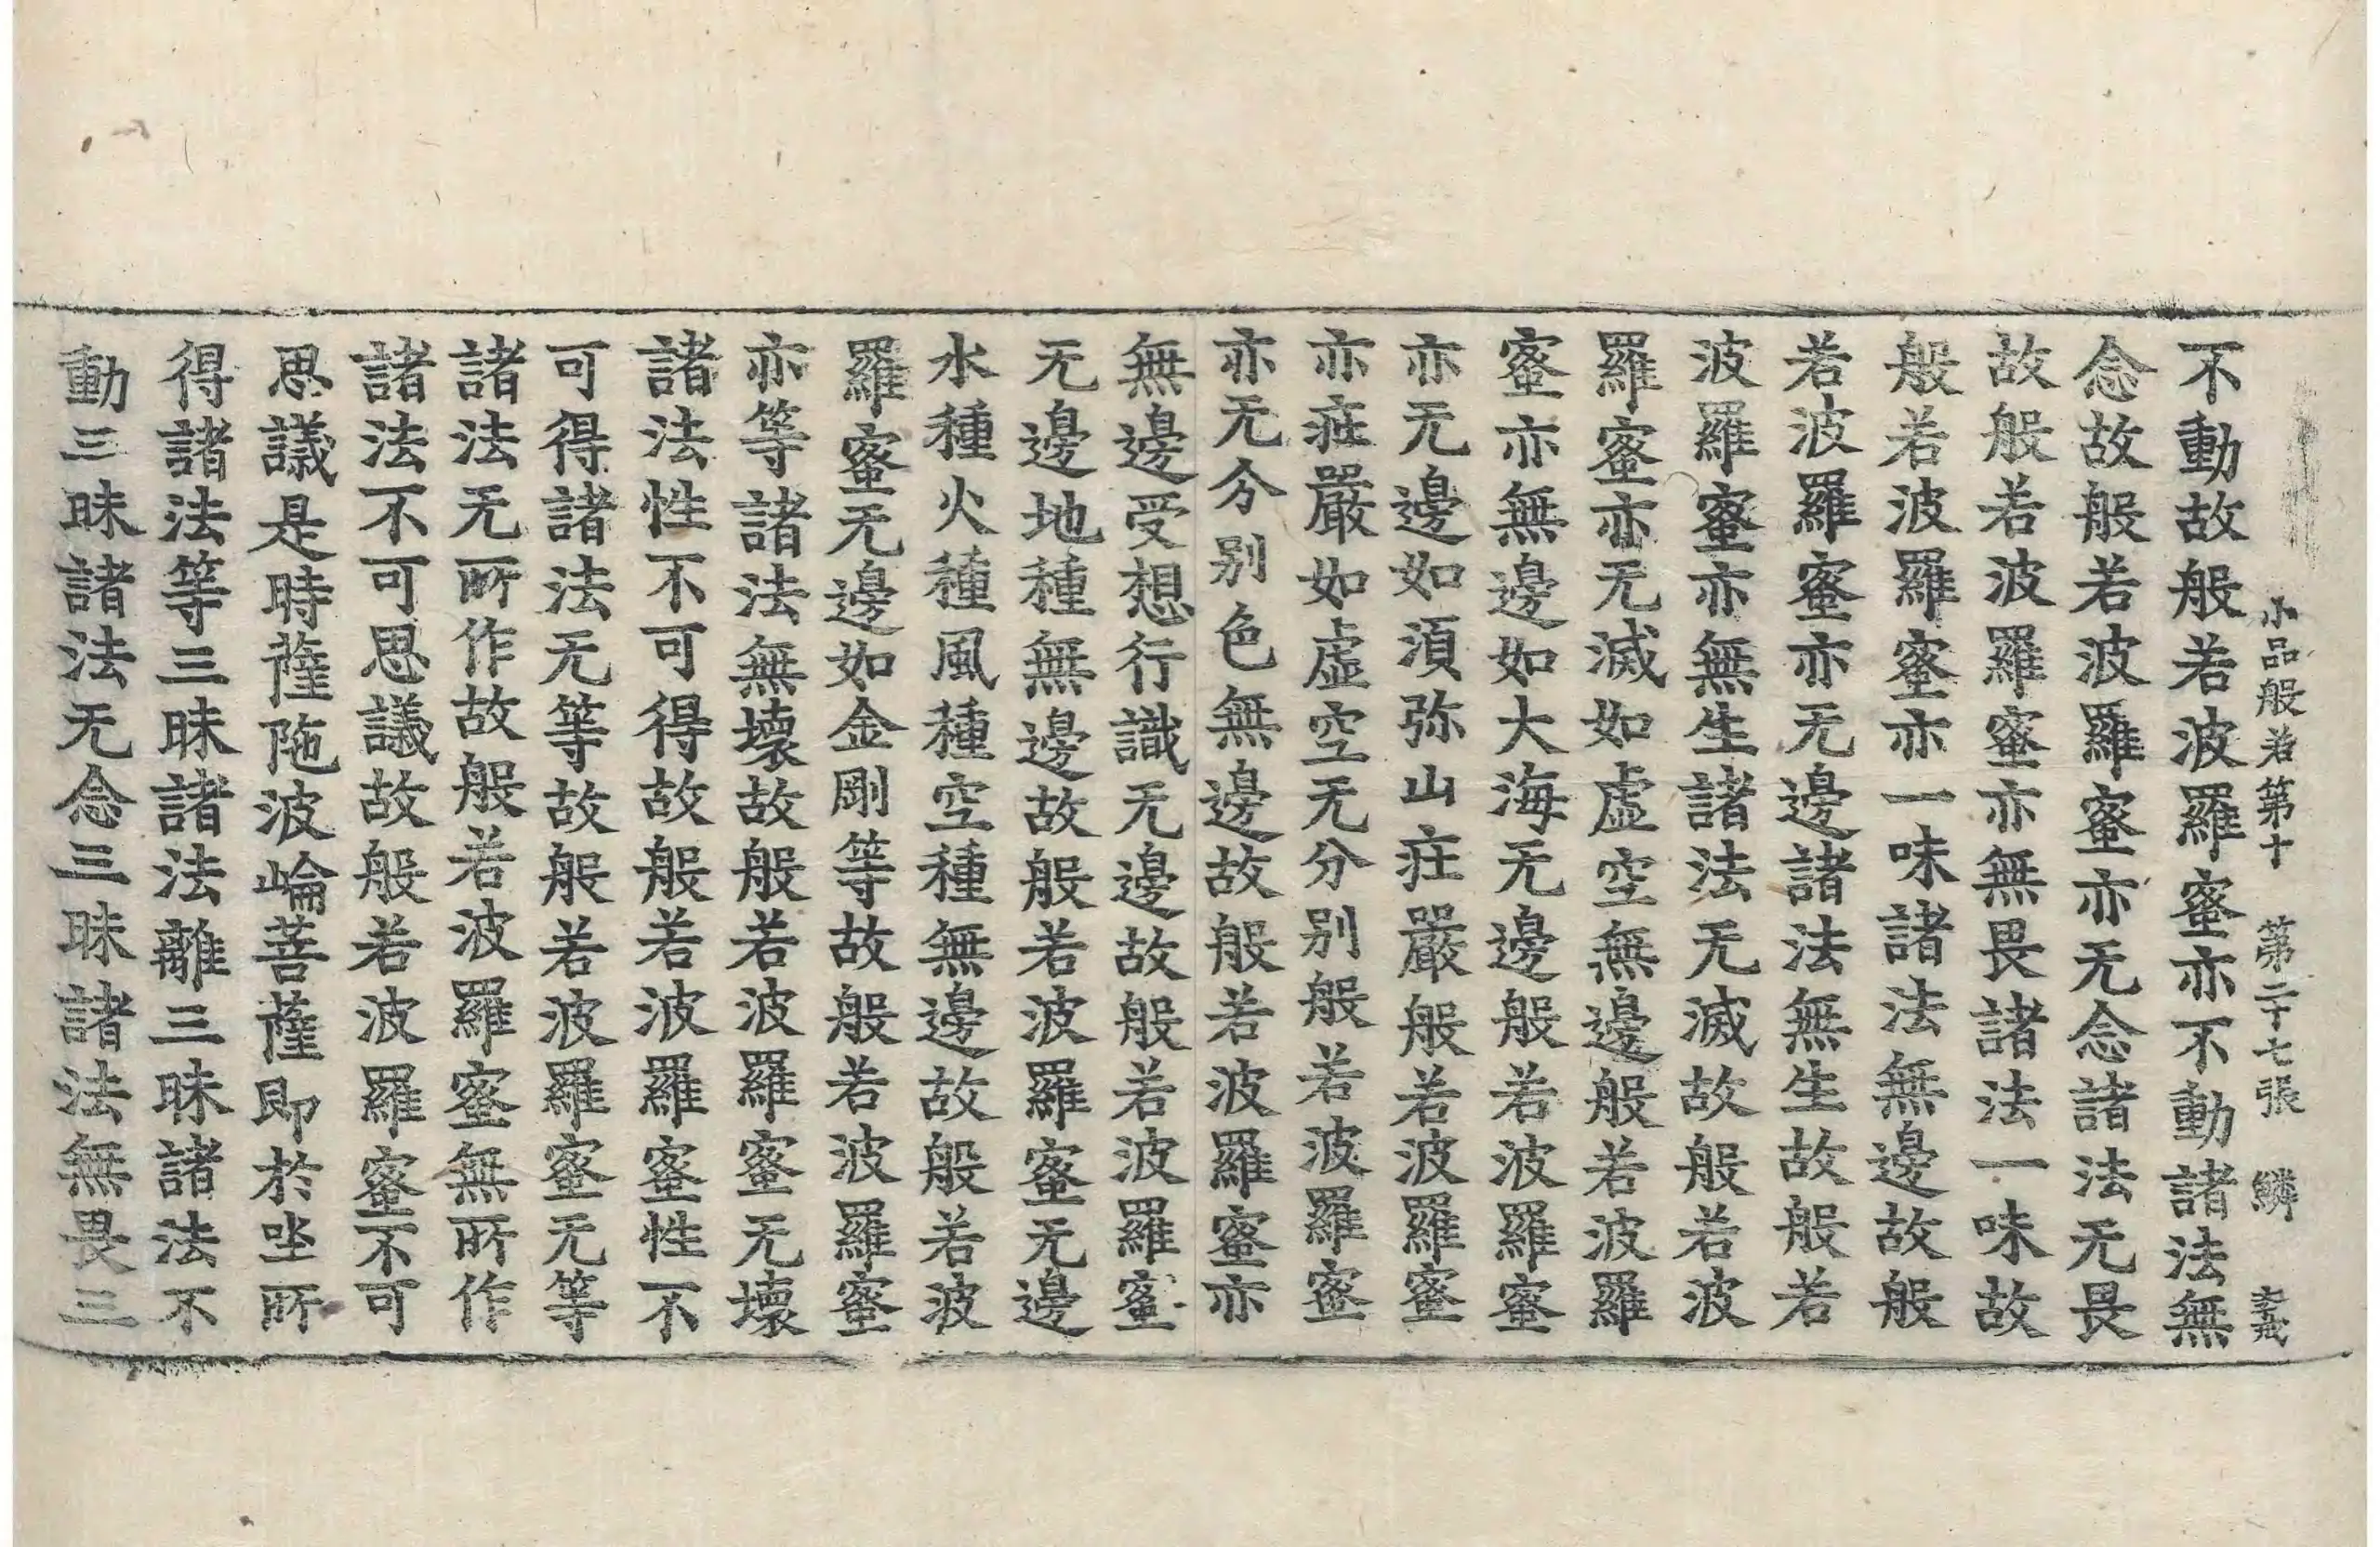 小品般若第十 第二十七張 鱗
不動故般若波羅蜜亦不動諸法無
念故般若波羅蜜亦无念諸法无畏
故般若波羅蜜亦無畏諸法一味故
般若波羅蜜亦一味諸法無邊故般
若波羅蜜亦无邊諸法無生故般若
波羅蜜亦無生諸法无滅故般若波
羅蜜亦无滅如虛空無邊般若波羅
蜜亦無邊如大海无邊般若波羅蜜
亦无邊如須弥山莊嚴般若波羅蜜
亦莊嚴如虛空无分別般若波羅蜜
亦无分别色無邊故般若波羅蜜亦
無邊受想行識无邊故般若波羅蜜
无邊地種無邊故般若波羅蜜无邊
水種火種風種空種無邊故般若波
羅蜜无邊如金剛等故般若波羅蜜
亦等諸法無壞故般若波羅蜜无壞
諸法性不可得故般若波羅蜜性不
可得諸法无等故般若波羅蜜无等
諸法无所作故般若波羅蜜無所作
諸法不可思議故般若波羅蜜不可
思議是時薩陁波崘菩薩即於坐所
得諸法等三昧諸法離三昧諸法不
動三昧諸法无念三昧諸法無畏三